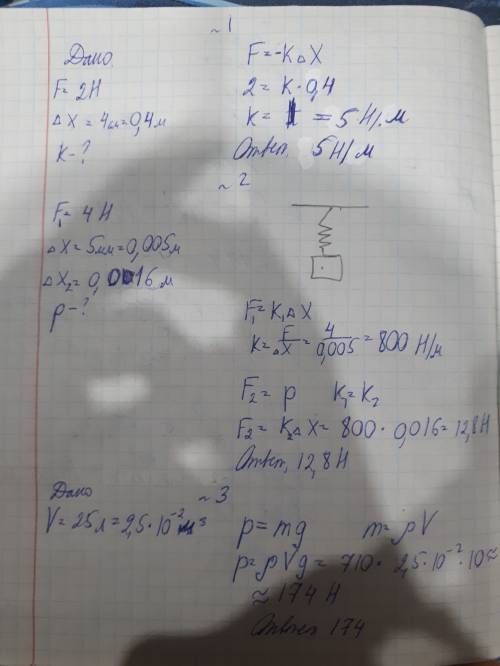 ~1
Дано
F = 2H
ΔX = 4см=0,4м
K-?
F=-KΔX
2 = K·0,4
K = = 5 H/м
Ответ, 5H/м
~2
F₁= 4 H
ΔX = 5мм=0,005м
ΔX₂=0,0016м
p-?
F₁=K₁ΔX
K= F/ΔX = 4/0,005 = 800 H/м
F₂= p K₁=K₂
F₂= K₂ΔX = 800 · 0,016=12,8H
Ответ, 12,8H
~3
Дано
V= 25л=2,5·10⁻²м³
p=mg m=ρV
p=ρVg= 710· 2,5·10⁻²·10≈
≈174 H
Ответ 174